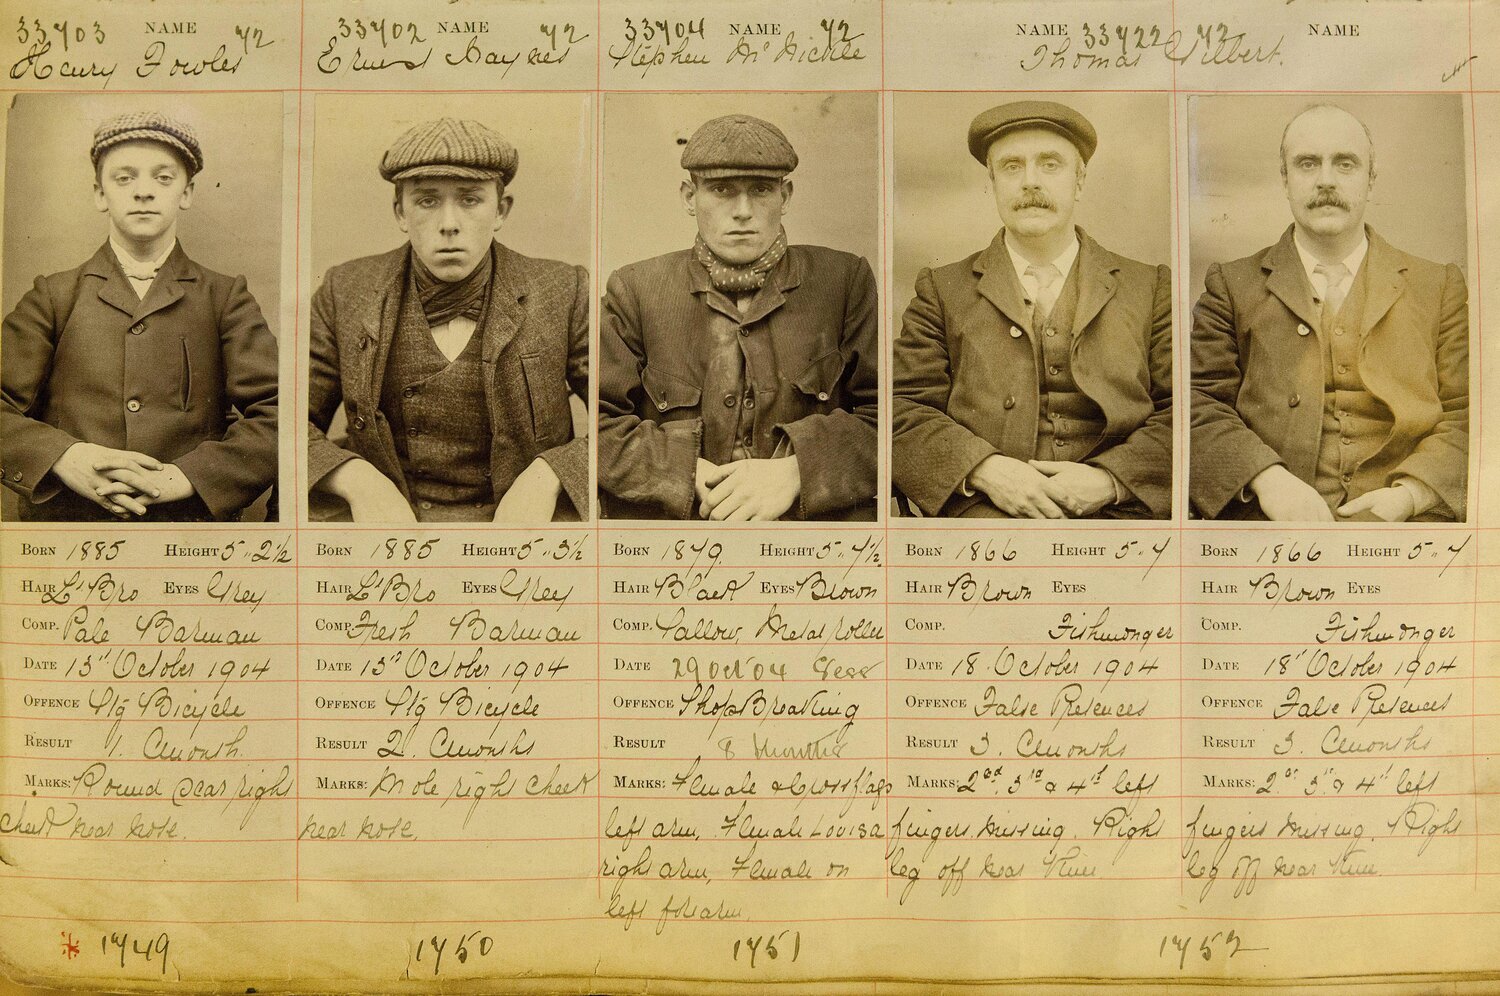 33703 NAME 72
Henry Fowles
33702 NAME 72
Ernest Haynes
33704 NAME 72
Stephen McNickle
NAME 33722 72
Thomas Gilbert.
NAME
BORN 1885 HEIGHT 5..2½
HAIR Lt Bro EYES Grey
COMP. Pale Barman
DATE 13th October 1904
OFFENCE Stg Bicycle
RESULT 1. Cmonth.
MARKS: Round scar right
cheek near nose.
* 1749
BORN 1885 HEIGHT 5..3½
HAIR Lt Bro EYES Grey
COMP. Fresh Barman
DATE 13th October 1904
OFFENCE Stg Bicycle
RESULT 2. Cmonths
MARKS: Mole right cheek
near nose.
1750
BORN 1879. HEIGHT 5..7½
HAIR Black EYES Brown
COMP. Sallow, Metal roller
DATE 29 Oct 04 Sess
OFFENCE Shop Breaking
RESULT 8 Months
MARKS: Female & Crossflags
left arm, Female Lovisa
right arm, Female on
left forearm.
1751
BORN 1866 HEIGHT 5..7
HAIR Brown EYES
COMP. Fishmonger
DATE 18 October 1904
OFFENCE False Pretences
RESULT 3. Cmonths
MARKS: 2nd, 3rd & 4th left
fingers missing. Right
leg off near Knee
BORN 1866 HEIGHT 5..7
HAIR Brown EYES
COMP. Fishmonger
DATE 18th October 1904
OFFENCE False Pretences
RESULT 3. Cmonths
MARKS: 2nd 3rd & 4th left
fingers missing. Right
leg off near Knee.
1752